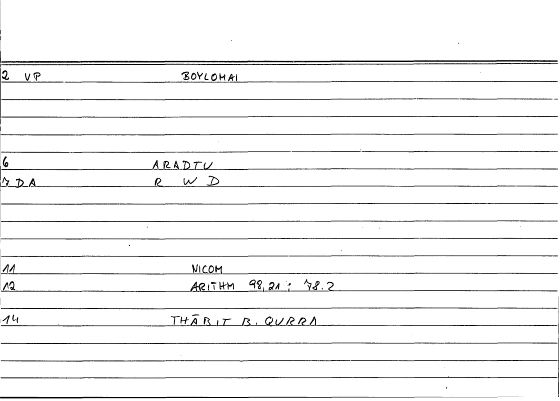 2 VP BOYLOMAI
6 ARADTU
7 DA R W D
11 NICOM
12 ARITHM 98,21 : 78.2
14 THĀBIT B. QURRA